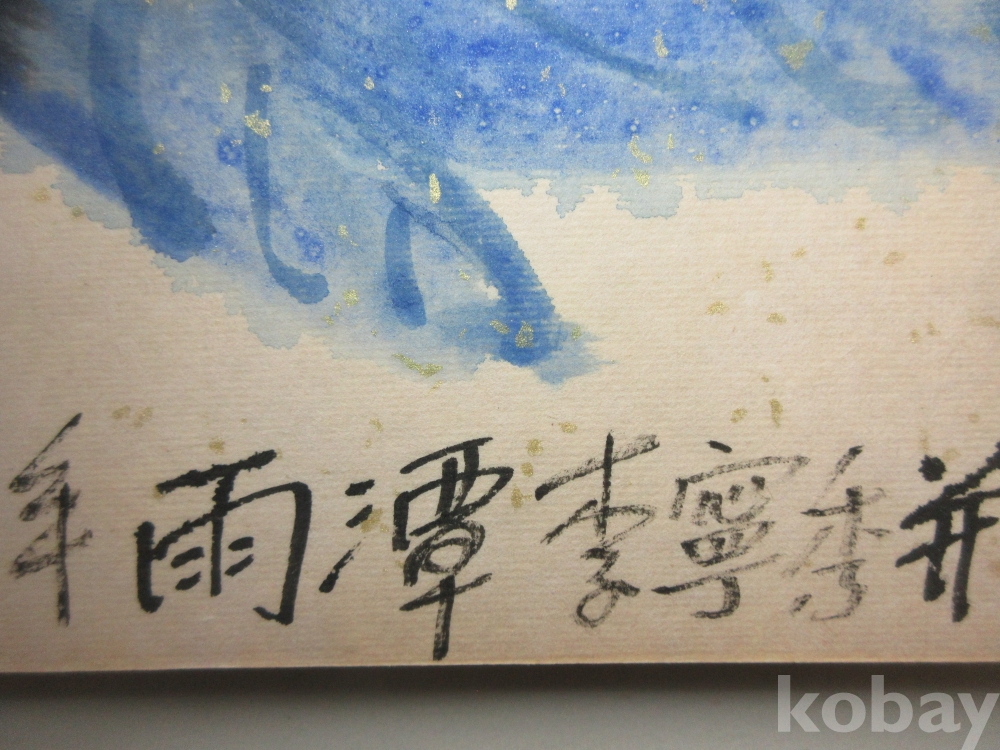 年雨潭李寧秀并
kobay